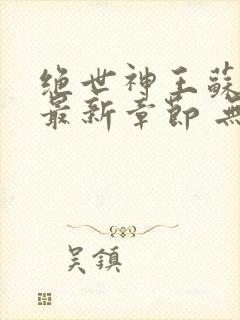 绝世神王蘇
最新章節 無
吳鎮